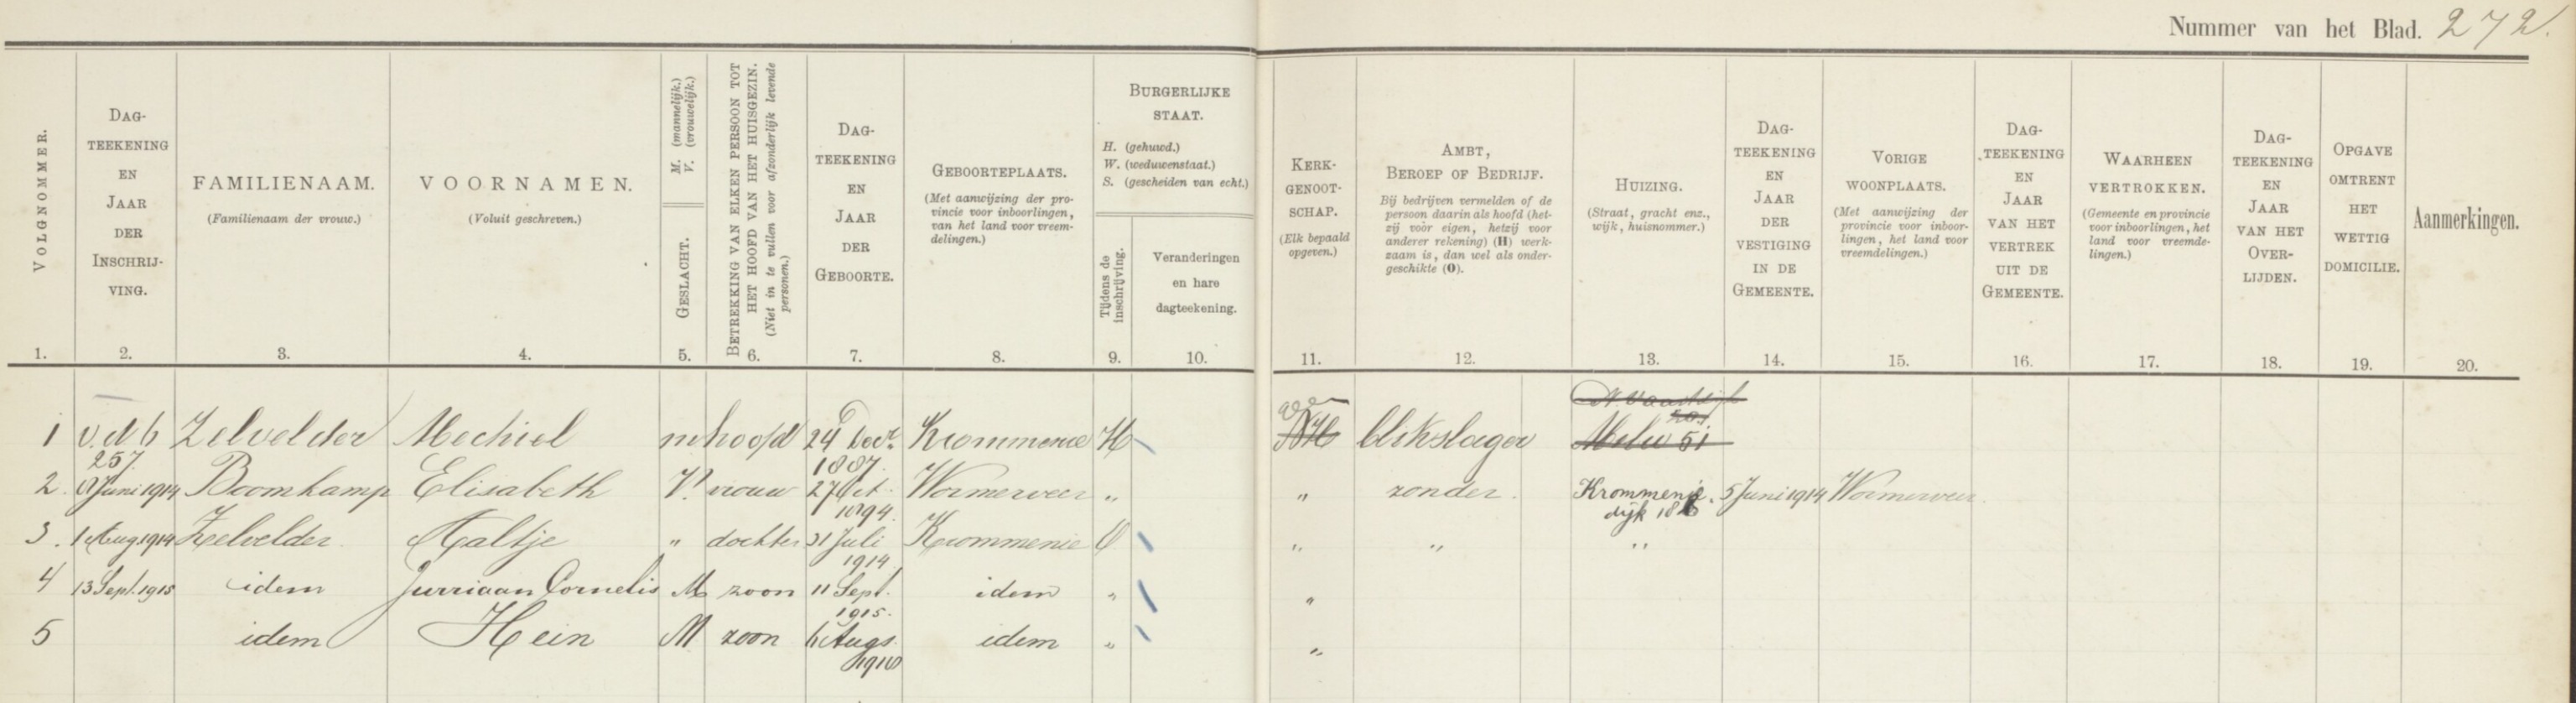 Nummer van het Blad. 272.
VOLGNOMMER.
DAG-
TEEKENING
EN
JAAR
DER
INSCHRIJ-
VING.
FAMILIENAAM.
(Familienaam der vrouw.)
VOORNAMEN.
(Voluit geschreven.)
M. (mannelijk.)
V. (vrouwelijk.)
GESLACHT.
BETREKKING VAN ELKEN PERSOON TOT
HET HOOFD VAN HET HUISGEZIN.
(Niet in te vullen voor afzonderlijk levende
personen.)
DAG-
TEEKENING
EN
JAAR
DER
GEBOORTE.
GEBOORTEPLAATS.
(Met aanwijzing der pro-
vincie voor inboorlingen,
van het land voor vreem-
delingen.)
BURGERLIJKE
STAAT.
H. (gehuwd.)
W. (weduwenstaat.)
S. (gescheiden van echt.)
Tijdens de
inschrijving.
Veranderingen
en hare
dagteekening.
KERK-
GENOOT-
SCHAP.
(Elk bepaald
opgeven.)
AMBT,
BEROEP OF BEDRIJF.
Bij bedrijven vermelden of de
persoon daarin als hoofd (het-
zij voor eigen, hetzij voor
anderer rekening) (H) werk-
zaam is, dan wel als onder-
geschikte (O).
HUIZING.
(Straat, gracht enz.,
wijk, huisnommer.)
DAG-
TEEKENING
EN
JAAR
DER
VESTIGING
IN DE
GEMEENTE.
VORIGE
WOONPLAATS.
(Met aanwijzing der
provincie voor inboor-
lingen, het land voor
vreemdelingen.)
DAG-
TEEKENING
EN
JAAR
VAN HET
VERTREK
UIT DE
GEMEENTE.
WAARHEEN
VERTROKKEN.
(Gemeente en provincie
voor inboorlingen, het
land voor vreemde-
lingen.)
DAG-
TEEKENING
EN
JAAR
VAN HET
OVER-
LIJDEN.
OPGAVE
OMTRENT
HET
WETTIG
DOMICILIE.
Aanmerkingen.
1. 2. 3. 4. 5. 6. 7. 8. 9. 10. 11. 12. 13. 14. 15. 16. 17. 18. 19. 20.
1 v.d b Zelvelder Mechiel m hoofd 24 Krommenie H NH blikslager 51
257. 1887.
2. Juni 1914 Boomkamp Elisabeth V. vrouw 27 Oct. Wormerveer " " zonder. Krommenie. 5 Juni 1914 Wormerveer
1894. dijk
3. 1 Aug 1914 Zelvelder Aaltje " dochter 31 Juli Krommenie O " " "
1914
4 13 Sept. 1915 idem Jurriaan Cornelis M zoon 11 Sept. idem " "
1915.
5 idem Hein M zoon 6 Augs. idem " "